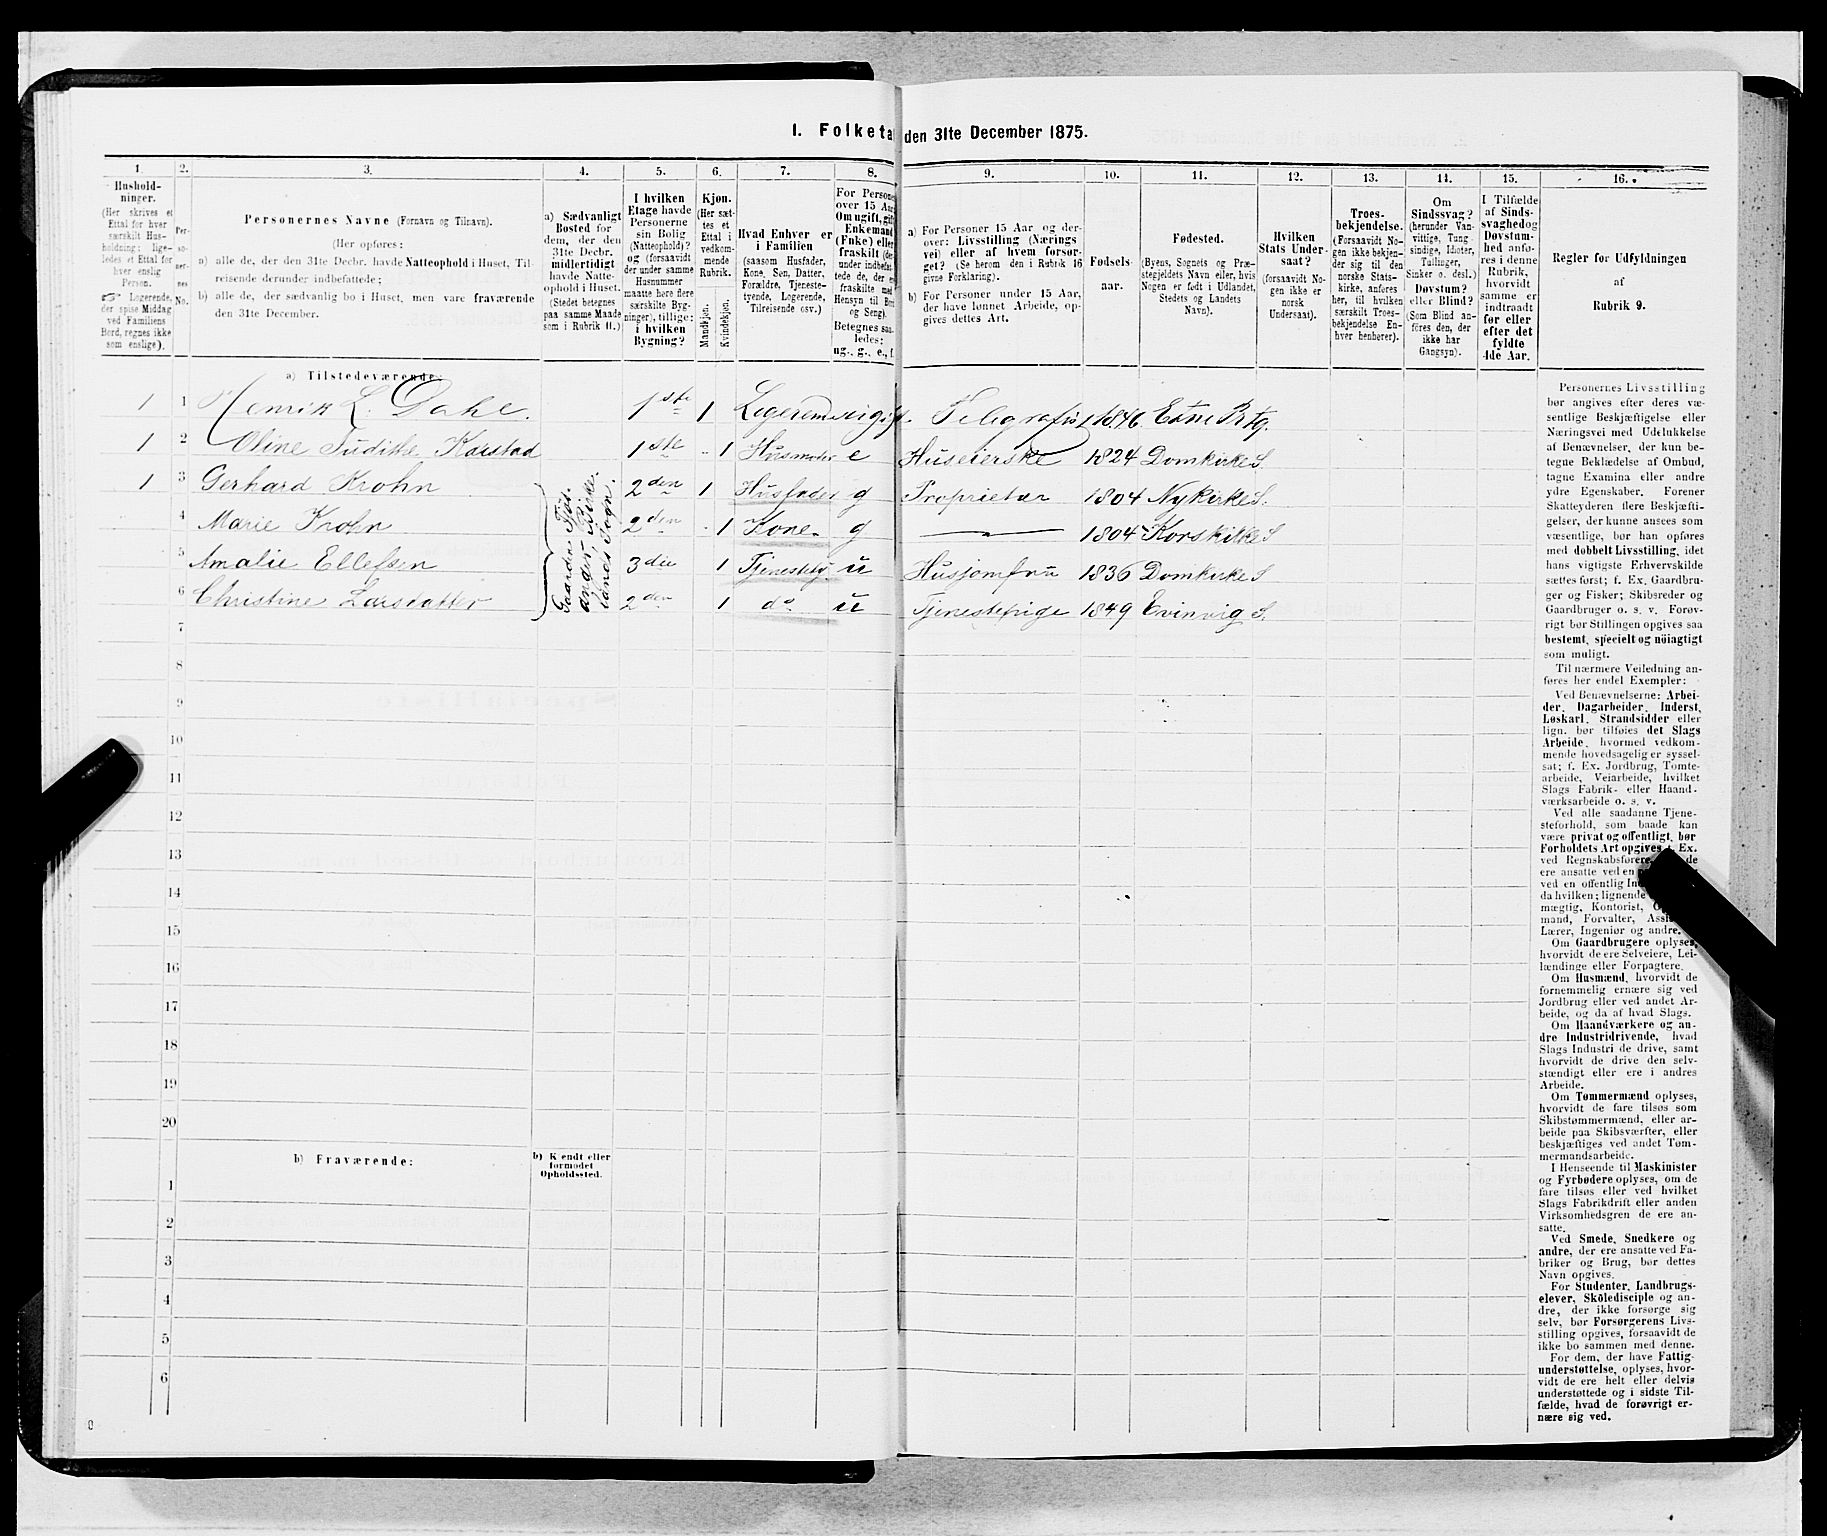 I. Folketal den 31te December 1875.
1. 2. 3. 4. 5. 6. 7. 8. 9. 10. 11. 12. 13. 14. 15. 16.
Hushold-
ninger.
(Her skrives et
Ettal for hver
særskilt Hus-
holdning; lige-
ledes et Ettal for
hver enslig
Person.
☞ Logerende,
der spise Middag
ved Familiens
Bord, regnes ikke
som enslige).
Per-
so-
ner-
nes
No.
Personernes Navne (Fornavn og Tilnavn).
(Her opføres:
a) alle de, der den 31te Decbr. havde Natteophold i Huset, Til-
reisende derunder indbefattede;
b) alle de, der sædvanlig bo i Huset, men vare fraværende
den 31te December.
a) Sædvanligt
Bosted for
dem, der den
31te Decbr.
midlertidigt
havde Natte-
ophold i Huset.
(Stedet betegnes
paa samme Maade
som i Rubrik 11.)
I hvilken
Etage havde
Personerne
sin Bolig
(Natteophold)?
og (forsaavidt
der under samme
Husnummer
maatte høre flere
særskilte Byg-
ninger), tillige:
i hvilken
Bygning?
Kjøn.
(Her sæt-
tes et
Ettal i
vedkom-
mende
Rubrik.
Mandkjøn.
Kvindekjøn.
Hvad Enhver er
i Familien
(saasom Husfader,
Kone, Søn, Datter,
Forældre, Tjeneste-
tyende, Logerende,
Tilreisende osv.)
For Persone
over 15 Aar
Om ugift, gift
Enkemand
(Enke) elle
fraskilt (der
under indbefat-
tede de, der er
fraskilte med
Hensyn til Bor
og Seng).
Betegnes saa-
ledes:
ug., g., e., f.
a) For Personer 15 Aar og der-
over: Livsstilling (Nærings
vei) eller af hvem forsør-
get? (Se herom den i Rubrik 16
givne Forklaring).
b) For Personer under 15 Aar,
der have lønnet Arbeide, op-
gives dettes Art.
Fødsels-
aar.
Fødested.
(Byens, Sognets og Præ-
stegjeldets Navn eller, hvis
Nogen er født i Udlandet,
Stedets og Landets
Navn).
Hvilken
Stats Under-
saat?
(forsaavidt No-
gen ikke er
norsk
Undersaat).
Troes-
bekjendelse.
(Forsaavidt No-
gen ikke bekjen-
der sig til den
norske Stats-
kirke, anføres
her, til hvilken
særskilt Troes-
bekjendelse En-
hver henhører).
Om
Sindssvag?
(herunder Van-
vittige, Tung-
sindige, Idioter,
Tullinger,
Sinker o. desl.)
Døvstum?
eller Blind?
(Som Blind an-
føres den, der
ikke har
Gangsyn).
I Tilfælde
af Sinds-
svaghed og
Døvstum-
hed anfø-
res i denne
Rubrik,
hvorvidt
samme er
indtraadt
før eller
efter det
fyldte
4de Aar.
Regler for Udfyldningen
af
Rubrik 9.
a) Tilstedeværende:
1 1 Henrik L. Dahl. 1ste 1 Logerende ugift. Telegrafist 1846 Etne Prtg.
1 2 Oline Judithe Karstad 1ste 1 Husmoder e Huseierske 1824 Domkirke S.
1 3 Gerhard Krohn 2den 1 Husfader g Proprietær 1804 Nykirke S.
4 Marie Krohn 2den 1 Kone g 1804 Korskirke S
5 Amalie Ellefsen 3die 1 Tjenestety u Husjomfru 1836 Domkirke S
6 Christine Larsdatter 2den 1 do u Tjenestepige 1849 Evinvig S.
Gaarden
Sogn.
7
8
9
10
11
12
13
14
15
16
17
18
19
20
b) Fraværende:
b) Kjendt eller
formodet
Opholdssted.
1
2
3
4
5
6
Personernes Livsstilling
bør angives efter deres væ-
sentlige Beskjæftigelse eller
Næringsvei med Udelukkelse
af Benævnelser, der kun be-
tegne Beklædelse af Ombud,
tagne Examina eller andre
ydre Egenskaber. Forener
Skatteyderen flere Beskjæfti-
gelser, der kunne ansees som
væsentlige, bør han opføres
med dobbelt Livsstilling, idet
hans vigtigste Erhvervskilde
sættes først; f. Ex. Gaardbru-
ger og Fisker; Skibsreder og
Gaardbruger o. s. v. Forøv-
rigt bør Stillingen opgives saa
bestemt, specielt og nöiagtigt
som muligt.
Til nærmere Veiledning an-
føres her endel Exempler:
Ved Benævnelserne: Arbei-
der, Dagarbeider, Inderst,
Løskarl, Strandsidder eller
lign. bør tilføies det Slags
Arbeide, hvormed vedkom-
mende hovedsagelig er syssel-
sat; f. Ex. Jordbrug, Tomte-
arbeide, Veiarbeide, hvilket
Slags Fabrik- eller Haand-
værksarbeide o. s. v.
Ved alle saadanne Tjene-
steforhold, som baade kan
være privat og offentligt, bør
Forholdets Art opgives f. Ex.
ved Regnskabsførere, de
ere ansatte ved en
ved en offentlig
da hvilken; lignende
mægtig, Kontorist,
mand, Forvalter,
Lærer, Ingeniør og andre.
Om Gaardbrugere oplyses,
hvorvidt de ere Selveiere, Lei-
lændinge eller Forpagtere.
Om Husmænd, hvorvidt de
fornemmelig ernære sig ved
Jordbrug eller ved andet Ar-
beide, og da af hvad Slags.
Om Haandværkere og an-
dre Industridrivende, hvad
Slags Industri de drive, samt
hvorvidt de drive den selv-
stændigt eller ere i andres
Arbeide.
Om Tømmermænd oplyses,
hvorvidt de fare tilsøs som
Skibstømmermænd, eller ar-
beide paa Skibsværfter, eller
beskjæftiges ved andet Tøm-
mermandsarbeide.
I Henseende til Maskinister
og Fyrbødere oplyses, om de
fare tilsøs eller ved hvilket
Slags Fabrikdrift eller anden
Virksomhedsgren de ere an-
satte.
Ved Smede, Snedkere og
andre, der ere ansatte ved Fa-
briker og Brug, bør dettes
Navn opgives.
For Studenter, Landbrugs-
elever, Skoledisciple og an-
dre, der ikke forsørge sig
selv, bør Forsørgerens Livs-
stilling opgives, forsaavidt de
ikke bo sammen med denne.
For dem, der have Fattig-
understøttelse, oplyses, hvor-
vidt de ere helt eller delvis
understøttede og i sidste Til-
fælde, hvad de forøvrigt er-
nære sig ved.